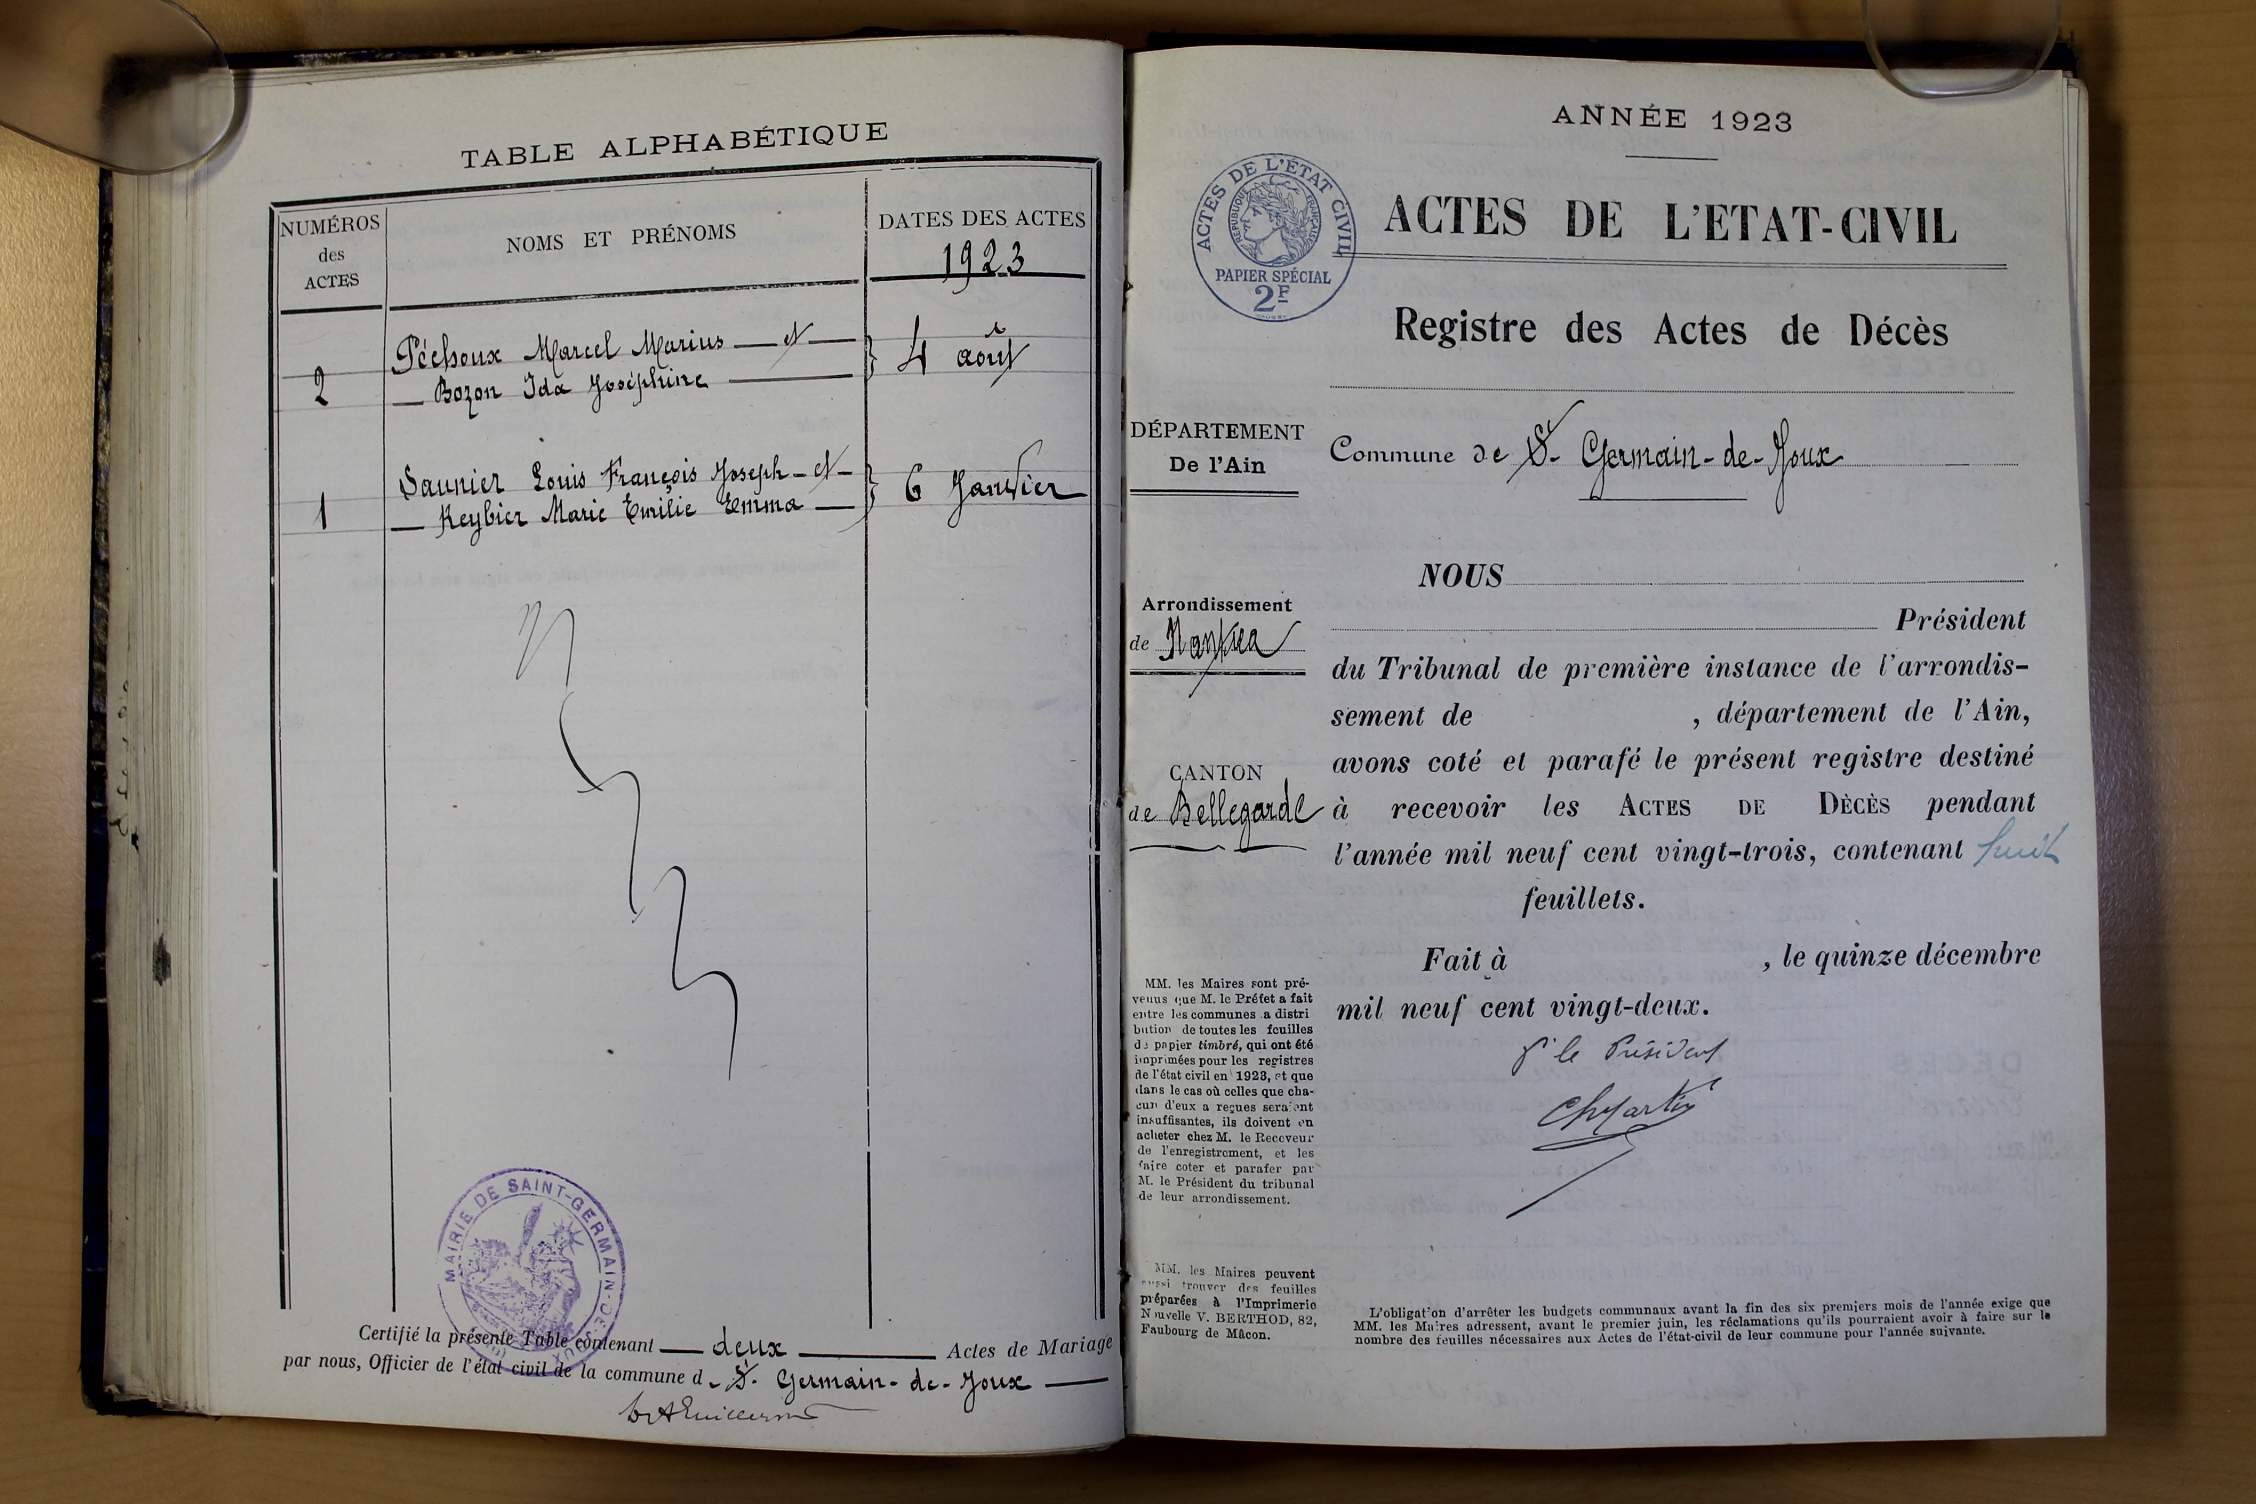 TABLE ALPHABÉTIQUE
NUMÉROS
des
ACTES
NOMS ET PRÉNOMS
DATES DES ACTES
1923
2
Péchoux Marcel Marius — et —
— Bozon Ida Joséphine —
4 août
1
Saunier Louis François Joseph - et -
— Reybier Marie Emilie Emma —
6 Janvier
MAIRIE DE SAINT-GERMAIN-DE-JOUX
Certifié la présente Table contenant — deux — Actes de Mariage
par nous, Officier de l'état civil de la commune d - St. Germain-de-Joux —
ANNÉE 1923
ACTES DE L'ÉTAT CIVIL
RÉPUBLIQUE FRANÇAISE
PAPIER SPÉCIAL
2F
ACTES DE L'ETAT-CIVIL
Registre des Actes de Décès
DÉPARTEMENT
De l'Ain
Commune de St- Germain-de-Joux
NOUS
Arrondissement
de Nantua
Président
du Tribunal de première instance de l'arrondis-
sement de , département de l'Ain,
avons coté et parafé le présent registre destiné
CANTON
de Bellegarde
à recevoir les ACTES DE DÉCÈS pendant
l'année mil neuf cent vingt-trois, contenant huit
feuillets.
Fait à , le quinze décembre
mil neuf cent vingt-deux.
Pr le Président
ChMartin
MM. les Maires sont pré-
venus que M. le Préfet a fait
entre les communes a distri
bution de toutes les feuilles
de papier timbré, qui ont été
imprimées pour les registres
de l'état civil en 1923, et que
dans le cas où celles que cha-
cun d'eux a reçues seraient
insuffisantes, ils doivent en
acheter chez M. le Receveur
de l'enregistrement, et les
faire coter et parafer par
M. le Président du tribunal
de leur arrondissement.
MM. les Maires peuvent
aussi trouver des feuilles
préparées à l'Imprimerie
Nouvelle V. BERTHOD, 82,
Faubourg de Mâcon.
L'obligation d'arrêter les budgets communaux avant la fin des six premiers mois de l'année exige que
MM. les Maires adressent, avant le premier juin, les réclamations qu'ils pourraient avoir à faire sur le
nombre des feuilles nécessaires aux Actes de l'état-civil de leur commune pour l'année suivante.